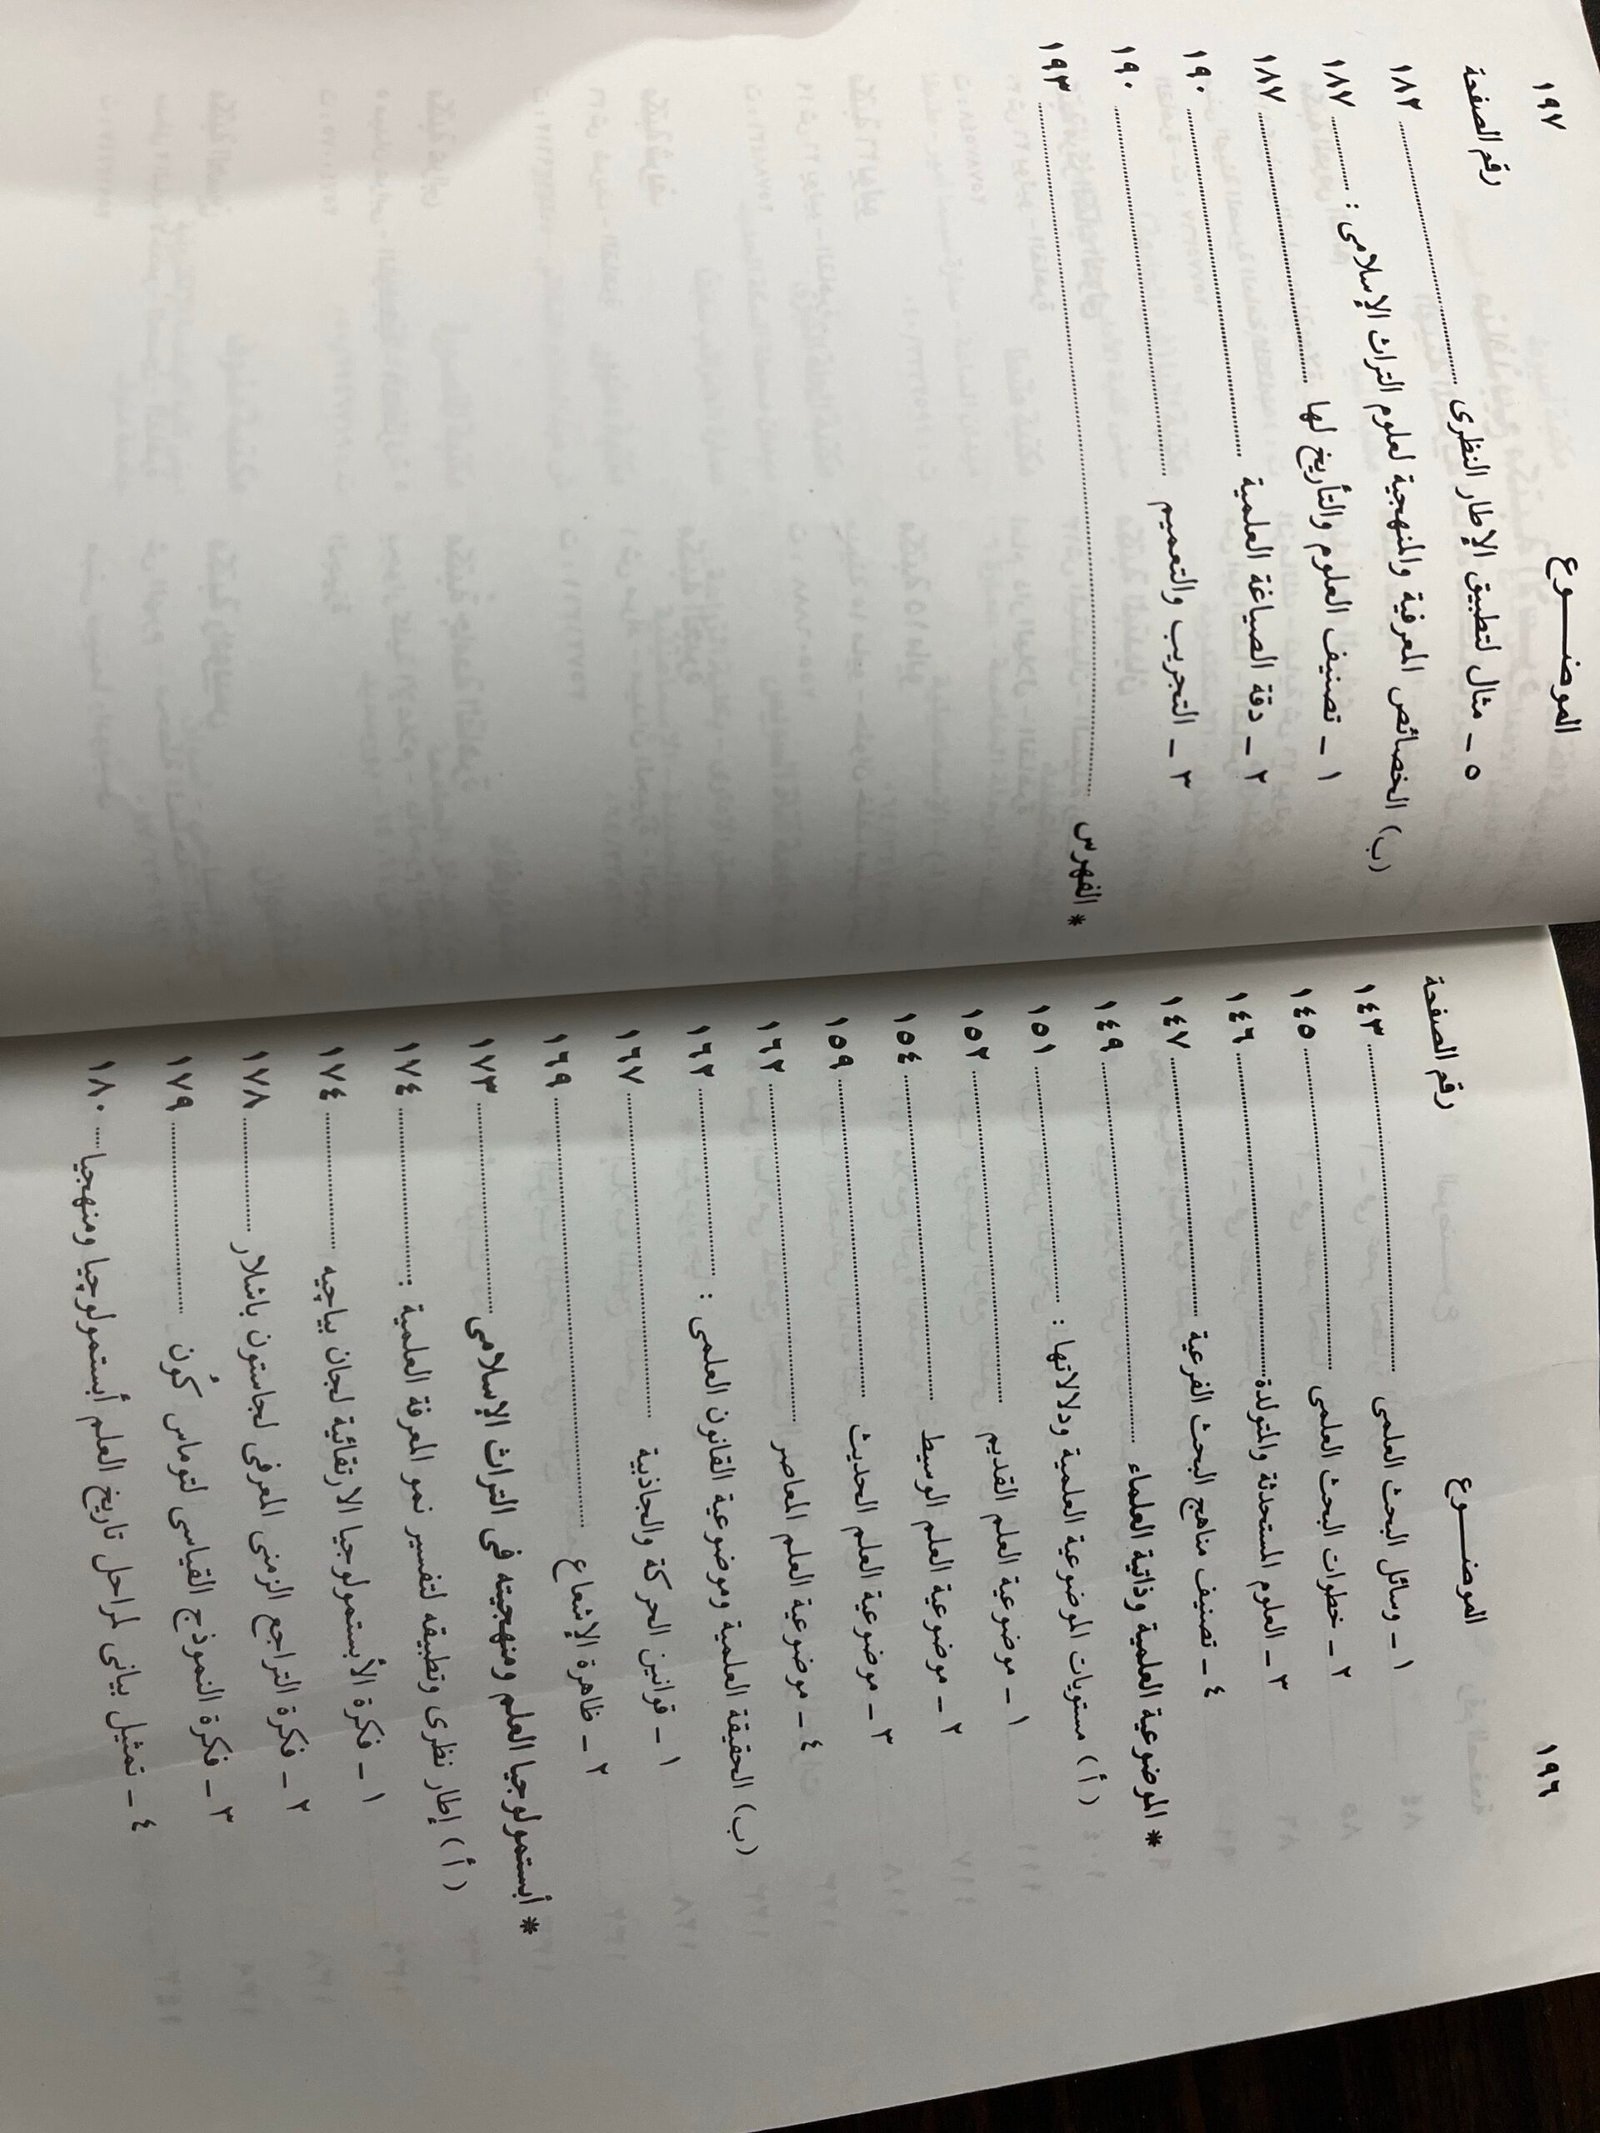 ١٩٦
الموضـــــوع رقم الصفحة
١ ـ وسائل البحث العلمى ........ ١٤٣
٢ ـ خطوات البحث العلمى ........ ١٤٥
٣ ـ العلوم المستحدثة والمتولدة ........ ١٤٦
٤ ـ تصنيف مناهج البحث الفرعية ........ ١٤٧
* الموضوعية العلمية وذاتية العلماء ........ ١٤٩
( أ ) مستويات الموضوعية العلمية ودلالاتها : ........ ١٥١
١ ـ موضوعية العلم القديم ........ ١٥٢
٢ ـ موضوعية العلم الوسيط ........ ١٥٤
٣ ـ موضوعية العلم الحديث ........ ١٥٩
٤ ـ موضوعية العلم المعاصر ........ ١٦٢
(ب) الحقيقة العلمية وموضوعية القانون العلمى : ........ ١٦٢
١ ـ قوانين الحركة والجاذبية ........ ١٦٧
٢ ـ ظاهرة الإشعاع ........ ١٦٩
* أبستمولوجيا العلم ومنهجيته فى التراث الإسلامى ........ ١٧٣
( أ ) إطار نظرى وتطبيقه لتفسير نمو المعرفة العلمية : ........ ١٧٤
١ ـ فكرة الأبستمولوجيا الارتقائية لجان بياجيه ........ ١٧٤
٢ ـ فكرة التراجع الزمنى المعرفى لجاستون باشلار ........ ١٧٨
٣ ـ فكرة النموذج القياسى لتوماس كُون ........ ١٧٩
٤ ـ تمثيل بيانى لمراحل تاريخ العلم أبستمولوجيا ومنهجيا .... ١٨٠
١٩٧
الموضـــــوع رقم الصفحة
٥ ـ مثال لتطبيق الإطار النظرى ........ ١٨٢
(ب) الخصائص المعرفية والمنهجية لعلوم التراث الإسلامى : ........ ١٨٧
١ ـ تصنيف العلوم والتأريخ لها ........ ١٨٧
٢ ـ دقة الصياغة العلمية ........ ١٩٠
٣ ـ التجريب والتعميم ........ ١٩٠
* الفهرس ........ ١٩٣